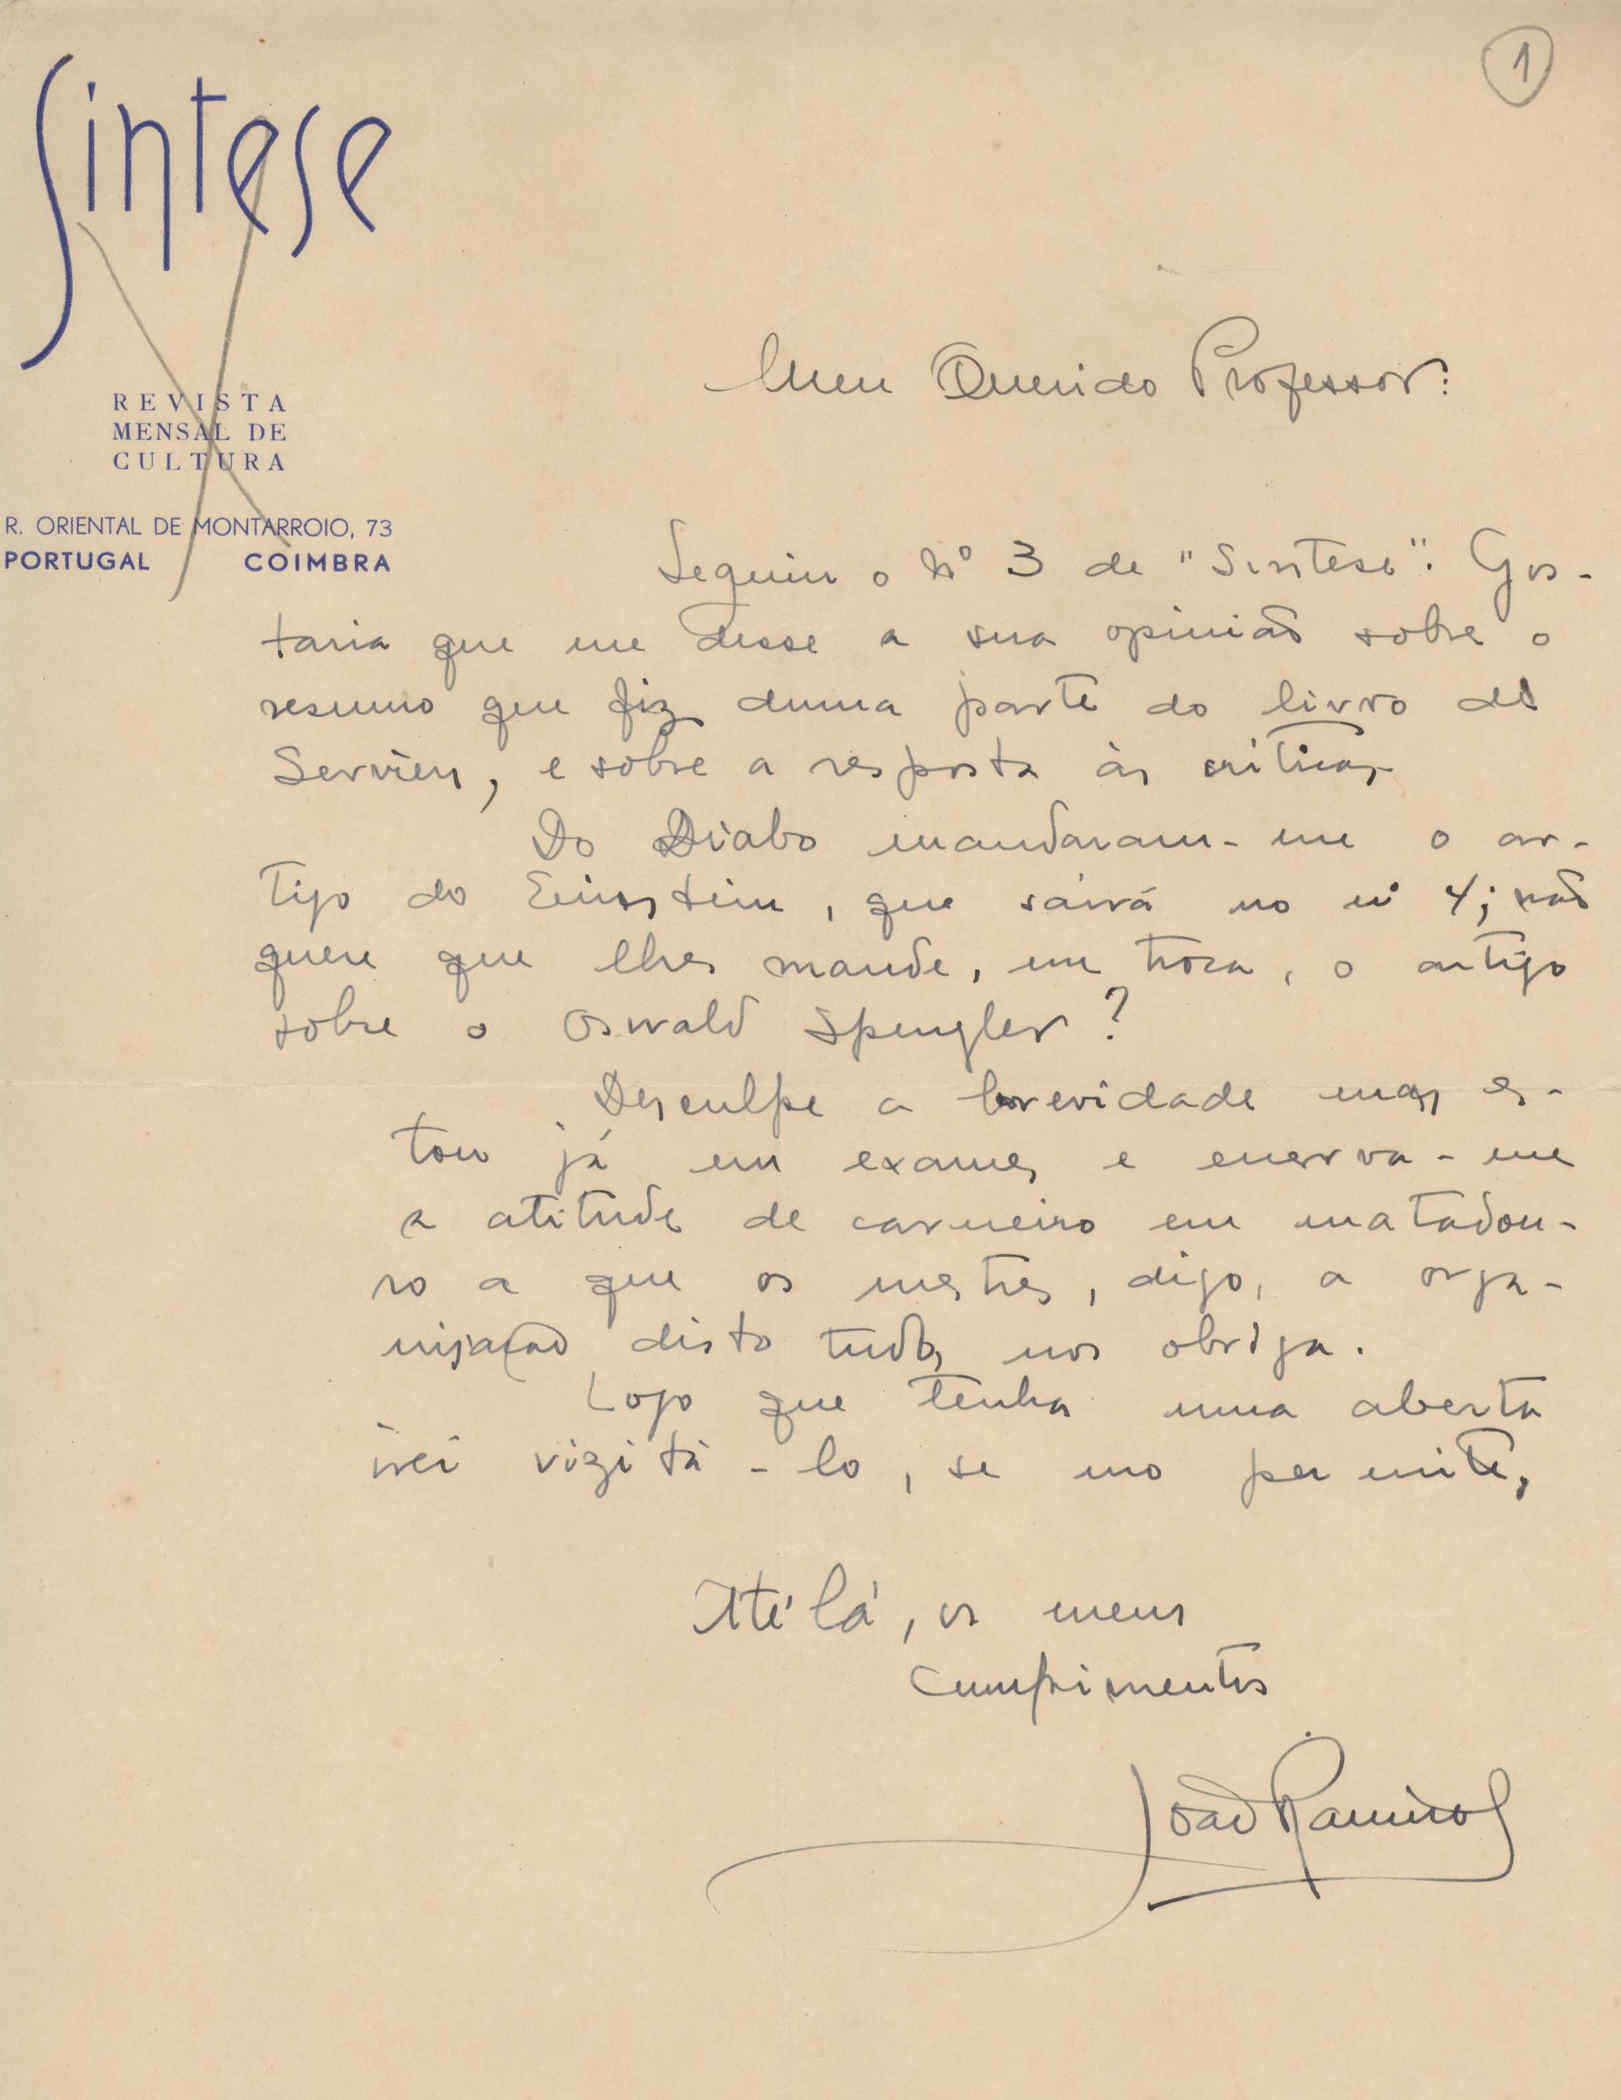 1
Síntese
REVISTA
MENSAL DE
CULTURA
R. ORIENTAL DE MONTARROIO, 73
PORTUGAL COIMBRA
Meu Querido Professor:
Seguiu o Nº 3 de "Sintese". Gos-
taria que me desse a sua opinião sobre o
resumo que fiz duma parte do livro de
Servien, e sobre a resposta às criticas
Do Diabo mandaram-me o ar-
tigo do Einstein, que sairá no nº 4; não
quere que lhes mande, em troca, o artigo
sobre o Oswald Spengler?
Desculpe a brevidade mas es-
tou já em exames e enerva-me
a atitude de carneiro em matadou-
ro a que os mestres, digo, a orga-
nisação disto tudo, nos obriga.
Logo que tenha uma aberta
irei vizitá-lo, se mo permite,
Até lá, os meus
cumprimentos
João Ramiro